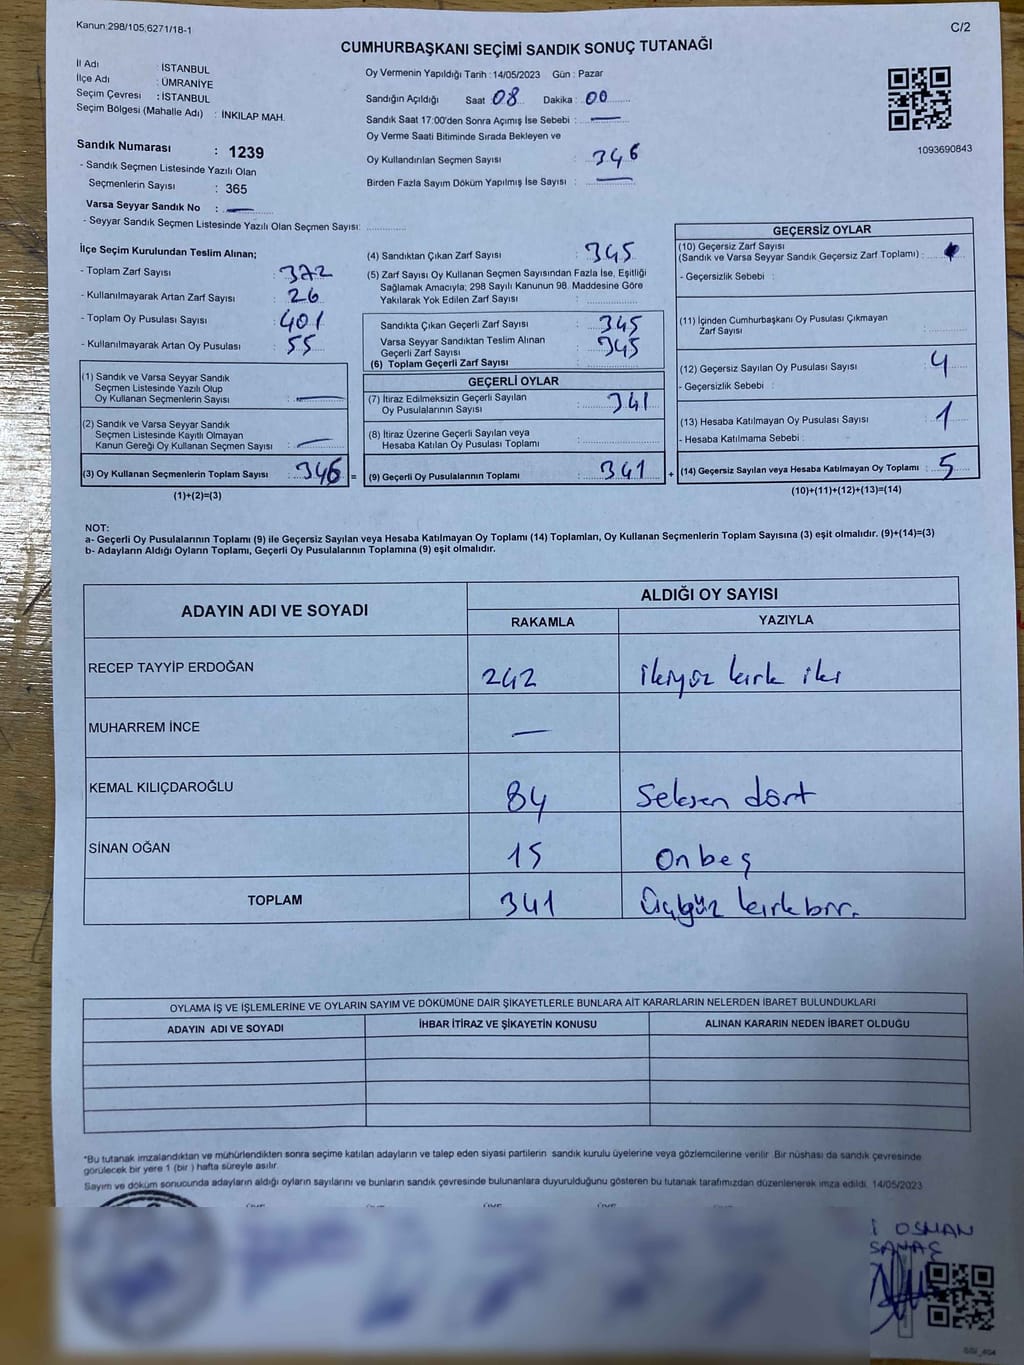 Kanun:298/105,6271/18-1
C/2
CUMHURBAŞKANI SEÇİMİ SANDIK SONUÇ TUTANAĞI
İl Adı : İSTANBUL
İlçe Adı : ÜMRANİYE
Seçim Çevresi : İSTANBUL
Seçim Bölgesi (Mahalle Adı) : İNKILAP MAH.
Sandık Numarası : 1239
- Sandık Seçmen Listesinde Yazılı Olan
Seçmenlerin Sayısı : 365
Varsa Seyyar Sandık No : —
- Seyyar Sandık Seçmen Listesinde Yazılı Olan Seçmen Sayısı:
Oy Vermenin Yapıldığı Tarih : 14/05/2023 Gün : Pazar
Sandığın Açıldığı Saat 08 Dakika : 00
Sandık Saat 17:00'den Sonra Açımış İse Sebebi : —
Oy Verme Saati Bitiminde Sırada Bekleyen ve
Oy Kullandırılan Seçmen Sayısı : 346
Birden Fazla Sayım Döküm Yapılmış İse Sayısı : —
1093690843
İlçe Seçim Kurulundan Teslim Alınan;
- Toplam Zarf Sayısı : 372
- Kullanılmayarak Artan Zarf Sayısı : 26
- Toplam Oy Pusulası Sayısı : 401
- Kullanılmayarak Artan Oy Pusulası : 55
(1) Sandık ve Varsa Seyyar Sandık
Seçmen Listesinde Yazılı Olup
Oy Kullanan Seçmenlerin Sayısı : —
(2) Sandık ve Varsa Seyyar Sandık
Seçmen Listesinde Kayıtlı Olmayan
Kanun Gereği Oy Kullanan Seçmen Sayısı : —
(3) Oy Kullanan Seçmenlerin Toplam Sayısı : 346 =
(1)+(2)=(3)
(4) Sandıktan Çıkan Zarf Sayısı : 345
(5) Zarf Sayısı Oy Kullanan Seçmen Sayısından Fazla İse, Eşitliği
Sağlamak Amacıyla; 298 Sayılı Kanunun 98. Maddesine Göre
Yakılarak Yok Edilen Zarf Sayısı :
Sandıkta Çıkan Geçerli Zarf Sayısı : 345
Varsa Seyyar Sandıktan Teslim Alınan
Geçerli Zarf Sayısı : 345
(6) Toplam Geçerli Zarf Sayısı :
GEÇERLİ OYLAR
(7) İtiraz Edilmeksizin Geçerli Sayılan
Oy Pusulalarının Sayısı : 341
(8) İtiraz Üzerine Geçerli Sayılan veya
Hesaba Katılan Oy Pusulası Toplamı :
(9) Geçerli Oy Pusulalarının Toplamı : 341 +
GEÇERSİZ OYLAR
(10) Geçersiz Zarf Sayısı
(Sandık ve Varsa Seyyar Sandık Geçersiz Zarf Toplamı) :
- Geçersizlik Sebebi :
(11) İçinden Cumhurbaşkanı Oy Pusulası Çıkmayan
Zarf Sayısı :
(12) Geçersiz Sayılan Oy Pusulası Sayısı : 4
- Geçersizlik Sebebi :
(13) Hesaba Katılmayan Oy Pusulası Sayısı : 1
- Hesaba Katılmama Sebebi :
(14) Geçersiz Sayılan veya Hesaba Katılmayan Oy Toplamı : 5
(10)+(11)+(12)+(13)=(14)
NOT:
a- Geçerli Oy Pusulalarının Toplamı (9) ile Geçersiz Sayılan veya Hesaba Katılmayan Oy Toplamı (14) Toplamları, Oy Kullanan Seçmenlerin Toplam Sayısına (3) eşit olmalıdır. (9)+(14)=(3)
b- Adayların Aldığı Oyların Toplamı, Geçerli Oy Pusulalarının Toplamına (9) eşit olmalıdır.
ADAYIN ADI VE SOYADI
ALDIĞI OY SAYISI
RAKAMLA YAZIYLA
RECEP TAYYİP ERDOĞAN 242 ikiyüz kırk iki
MUHARREM İNCE —
KEMAL KILIÇDAROĞLU 84 Seksen dört
SİNAN OĞAN 15 Onbeş
TOPLAM 341 Üçyüz kırkbir.
OYLAMA İŞ VE İŞLEMLERİNE VE OYLARIN SAYIM VE DÖKÜMÜNE DAİR ŞİKAYETLERLE BUNLARA AİT KARARLARIN NELERDEN İBARET BULUNDUKLARI
ADAYIN ADI VE SOYADI İHBAR İTİRAZ VE ŞİKAYETİN KONUSU ALINAN KARARIN NEDEN İBARET OLDUĞU
*Bu tutanak imzalandıktan ve mühürlendikten sonra seçime katılan adayların ve talep eden siyasi partilerin sandık kurulu üyelerine veya gözlemcilerine verilir. Bir nüshası da sandık çevresinde
görülecek bir yere 1 (bir ) hafta süreyle asılır.
Sayım ve döküm sonucunda adayların aldığı oyların sayılarını ve bunların sandık çevresinde bulunanlara duyurulduğunu gösteren bu tutanak tarafımızdan düzenlenerek imza edildi. 14/05/2023
OSMAN